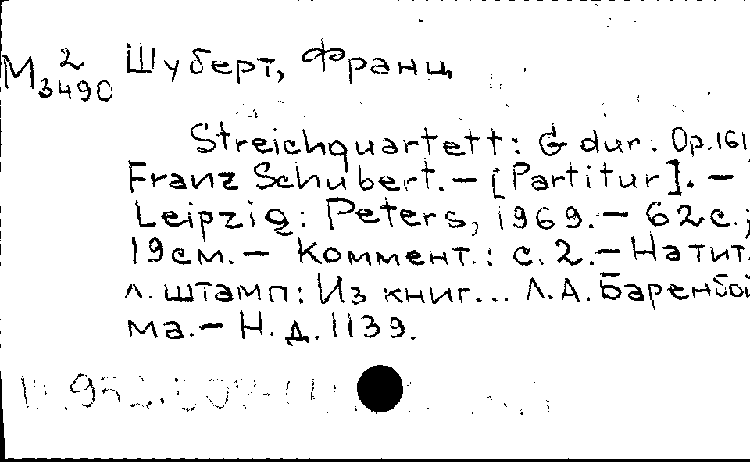 М 2 Шуберт, Франц
3490
Streichquartett: G dur. Op.161
Franz Schubert. – [Partitur]. –
Leipzig: Peters, 1969. – 62 с.;
19 см. – Коммент.: с. 2. – На тит.
л. штамп: Из книг... Л.А. Баренбой
ма. – Н.д. 1139.